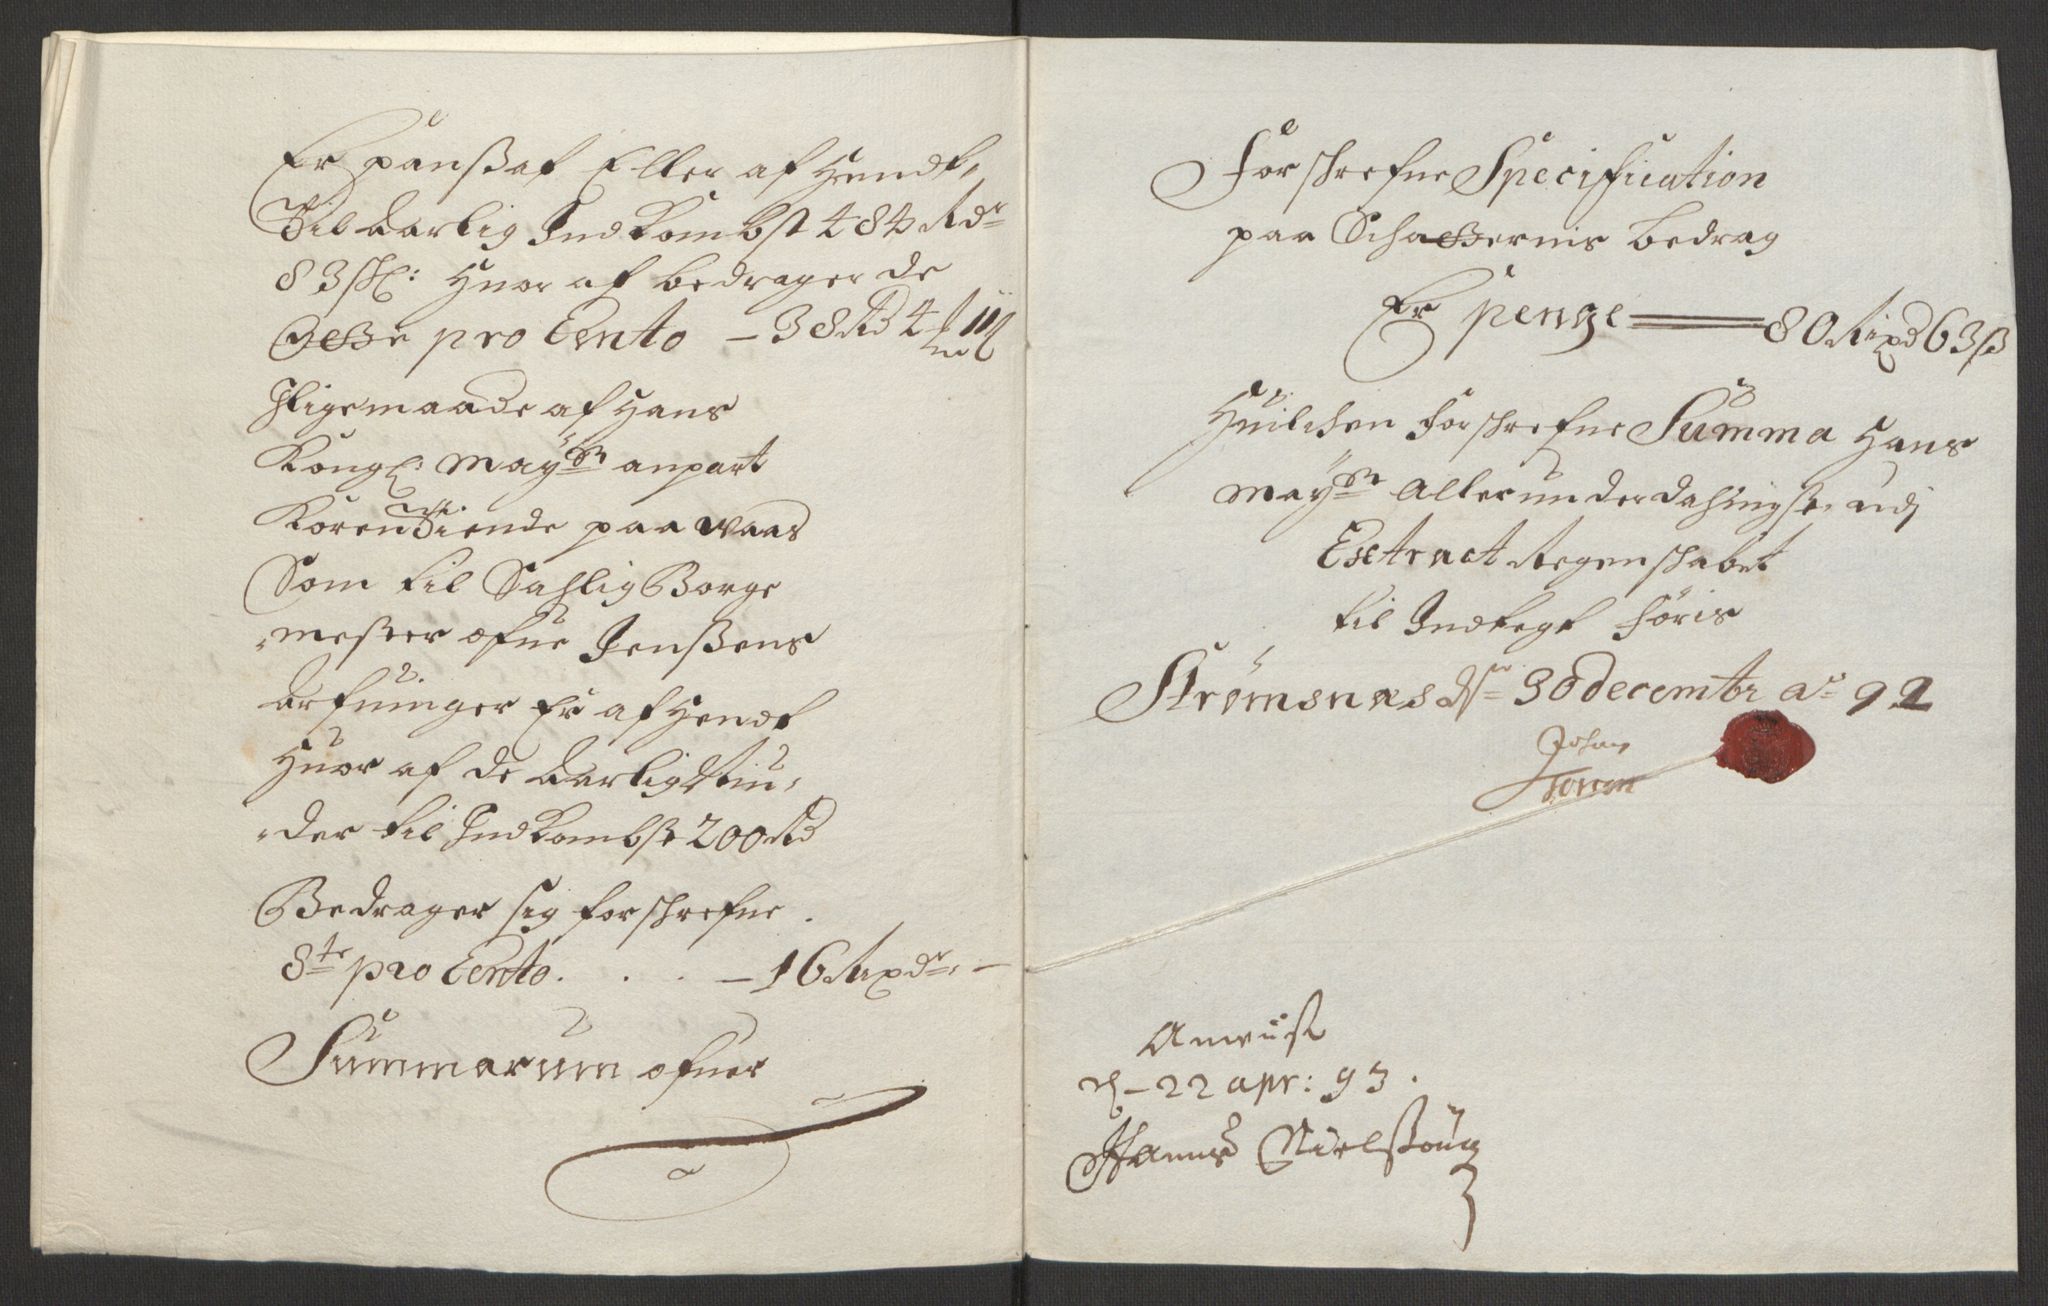 Er pansat Eller af Hendt,
Til aarlig Indkombst 484 Rdr
83 sk: Huor af bedrager de
pro Cento – 38 Rd 4
Jligemaade af Hans
Kongl: Mayts anpart
Koren Tiende paa Waas
Som til Sahlig Borge
mester ofue Jenßens
Arfuinger Er af Hendt
Huor af de aarlig Niu,
der til Indkombst 200 Rd
Bedrager sig forschrefne
8te pro Cento. . . . – 16 Rixdr, –
Summarum ofuer
Forschrefne Specification
paa bedrag
Er penge 80 Rixd 63 ß
Huilchen forschrefne Summa Hans
Mayts Allerunderdanigst udj
Extract Regenschabet
til Indtegt föris
Strømsnes dn 30 decembr ao 92
Johan
Anvist
d – 22 apr: 93.
Hanns Nielssøn